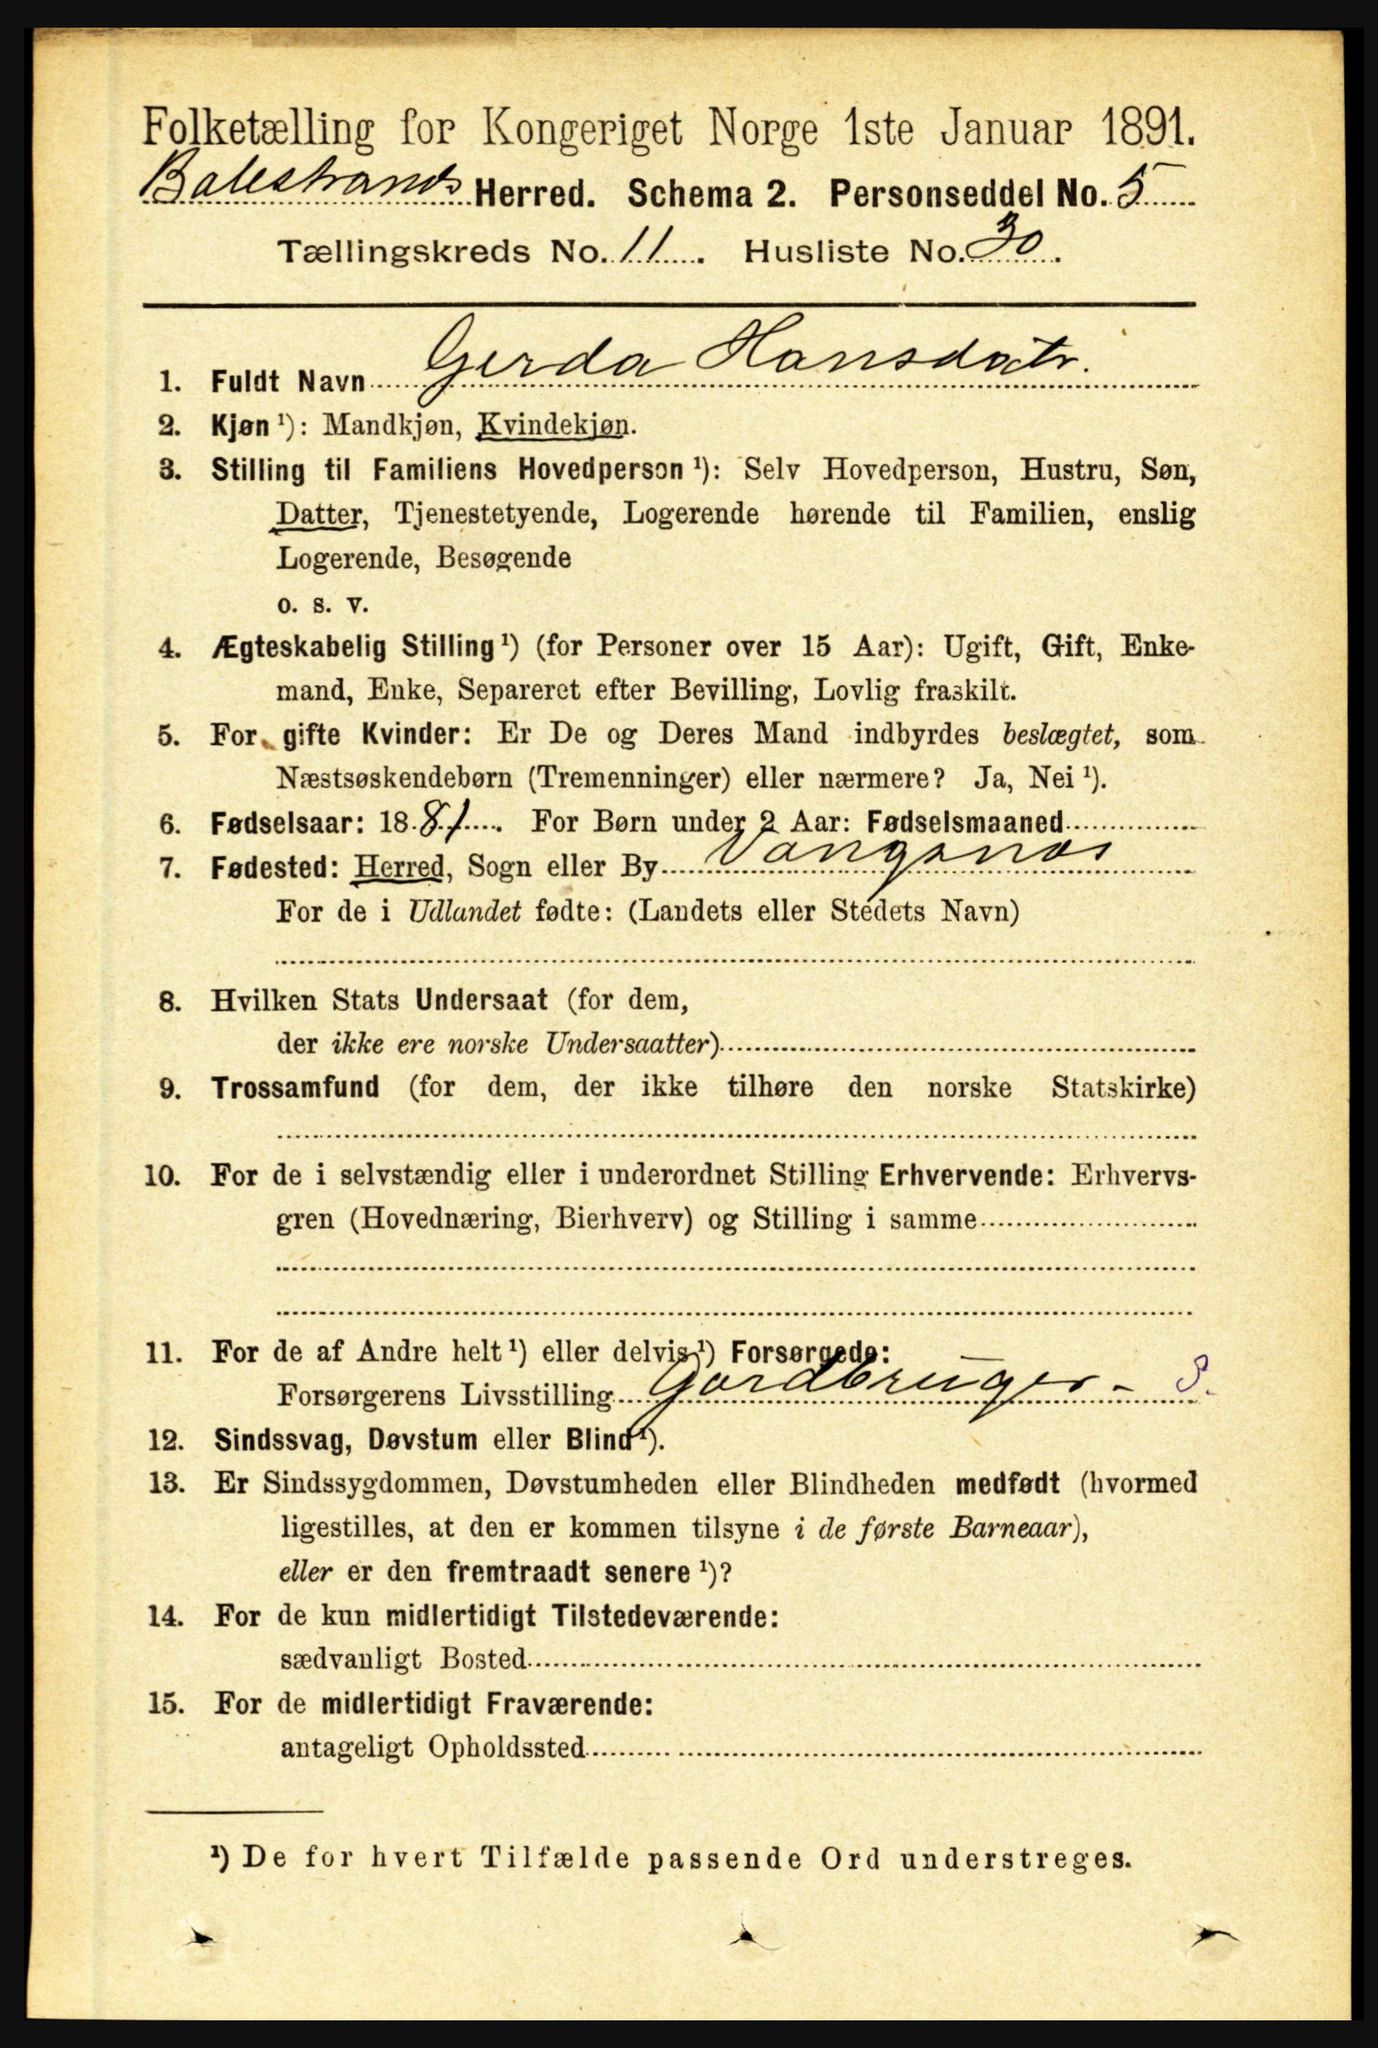 Folketælling for Kongeriget Norge 1ste Januar 1891.
Balestrands Herred. Schema 2. Personseddel No. 5
Tællingskreds No. 11. Husliste No. 30.
1. Fuldt Navn Gerda Hansdatr.
2. Kjøn ¹): Mandkjøn, Kvindekjøn.
3. Stilling til Familiens Hovedperson ¹): Selv Hovedperson, Hustru, Søn,
Datter, Tjenestetyende, Logerende hørende til Familien, enslig
Logerende, Besøgende
o. s. v.
4. Ægteskabelig Stilling ¹) (for Personer over 15 Aar): Ugift, Gift, Enke-
mand, Enke, Separeret efter Bevilling, Lovlig fraskilt.
5. For gifte Kvinder: Er De og Deres Mand indbyrdes beslægtet, som
Næstsøskendebørn (Tremenninger) eller nærmere? Ja, Nei ¹).
6. Fødselsaar: 1881. For Børn under 2 Aar: Fødselsmaaned
7. Fødested: Herred, Sogn eller By Vangsnes
For de i Udlandet fødte: (Landets eller Stedets Navn)
8. Hvilken Stats Undersaat (for dem,
der ikke ere norske Undersaatter)
9. Trossamfund (for dem, der ikke tilhøre den norske Statskirke)
10. For de i selvstændig eller i underordnet Stilling Erhvervende: Erhvervs-
gren (Hovednæring, Bierhverv) og Stilling i samme
11. For de af Andre helt ¹) eller delvis ¹) Forsørgede:
Forsørgerens Livsstilling Gardbruger - S.
12. Sindssvag, Døvstum eller Blind ¹).
13. Er Sindssygdommen, Døvstumheden eller Blindheden medfødt (hvormed
ligestilles, at den er kommen tilsyne i de første Barneaar),
eller er den fremtraadt senere ¹)?
14. For de kun midlertidigt Tilstedeværende:
sædvanligt Bosted
15. For de midlertidigt Fraværende:
antageligt Opholdssted
¹) De for hvert Tilfælde passende Ord understreges.